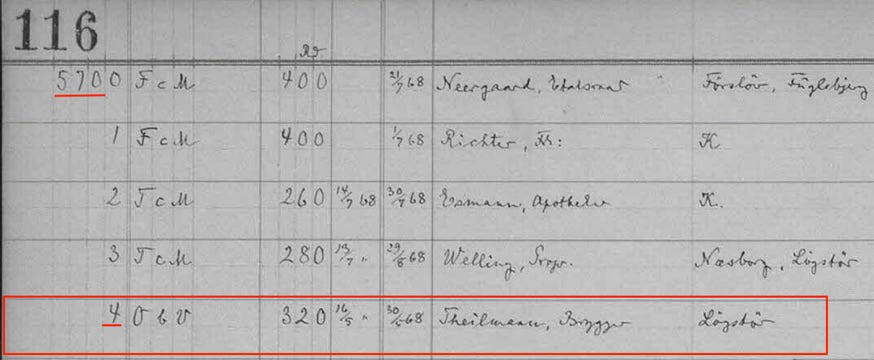 116
Rd
5700 F c M 400 21/7 68 Neergaard, Etatsraad Förslöv, Fuglebjerg
1 F c M 400 1/7 68 Richter, Fr: K
2 T c M 260 14/7 68 30/7 68 Esmann, Apotheker K.
3 T c M 280 13/7 " 29/8 68 Welling, Propr. Næsborg, Lögstör
4 O b V 320 16/5 " 68 Theilmann, Brygger Lögstör